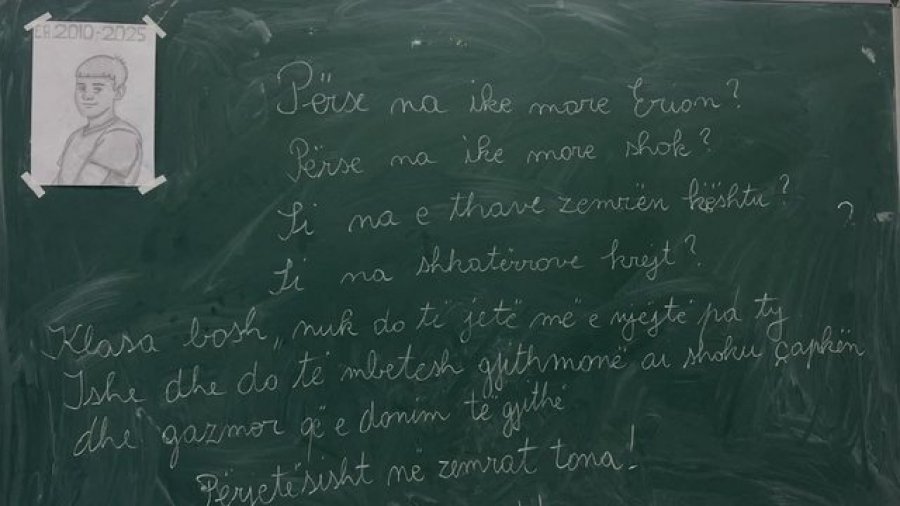 ER 2010-2025
Përse na ike more Erion?
Përse na ike more shok?
Si na e thave zemrën kështu?
?
Si na shkatërrove krejt?
Klasa bosh, nuk do të jetë më e njëjtë pa ty
Ishe dhe do të mbetesh gjithmonë ai shoku çapkën
dhe gazmor që e donim të gjithë
Përjetësisht në zemrat tona!